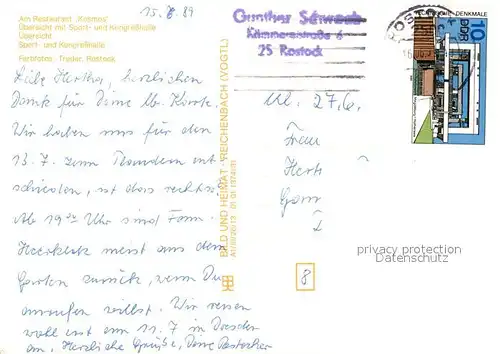 15.6.89
Am Restaurant „Kosmos“
Übersicht mit Sport- und Kongreßhalle
Übersicht
Sport- und Kongreßhalle
Farbfotos: Treder, Rostock
Liebe Hertha, herzlichen
Dank für Deine lb. Karte.
Wir haben uns für den
13.7. zum Wandern ent
schieden, ist das recht?
Ab 19°° Uhr sind Fam.
meist aus dem
Garten zurück, wenn Du
anrufen willst. Wir reisen
wohl erst am 11.7 in Dresden
an, Herzliche Grüße, Deine Rostocker
BILD UND HEIMAT REICHENBACH (VOGTL)
Gunther
Kämmereistraße 6
25 Rostock
27.6.
Frau
ROSTOCK
DENKMALE
DDR
10
8
privacy protection
Datenschutz